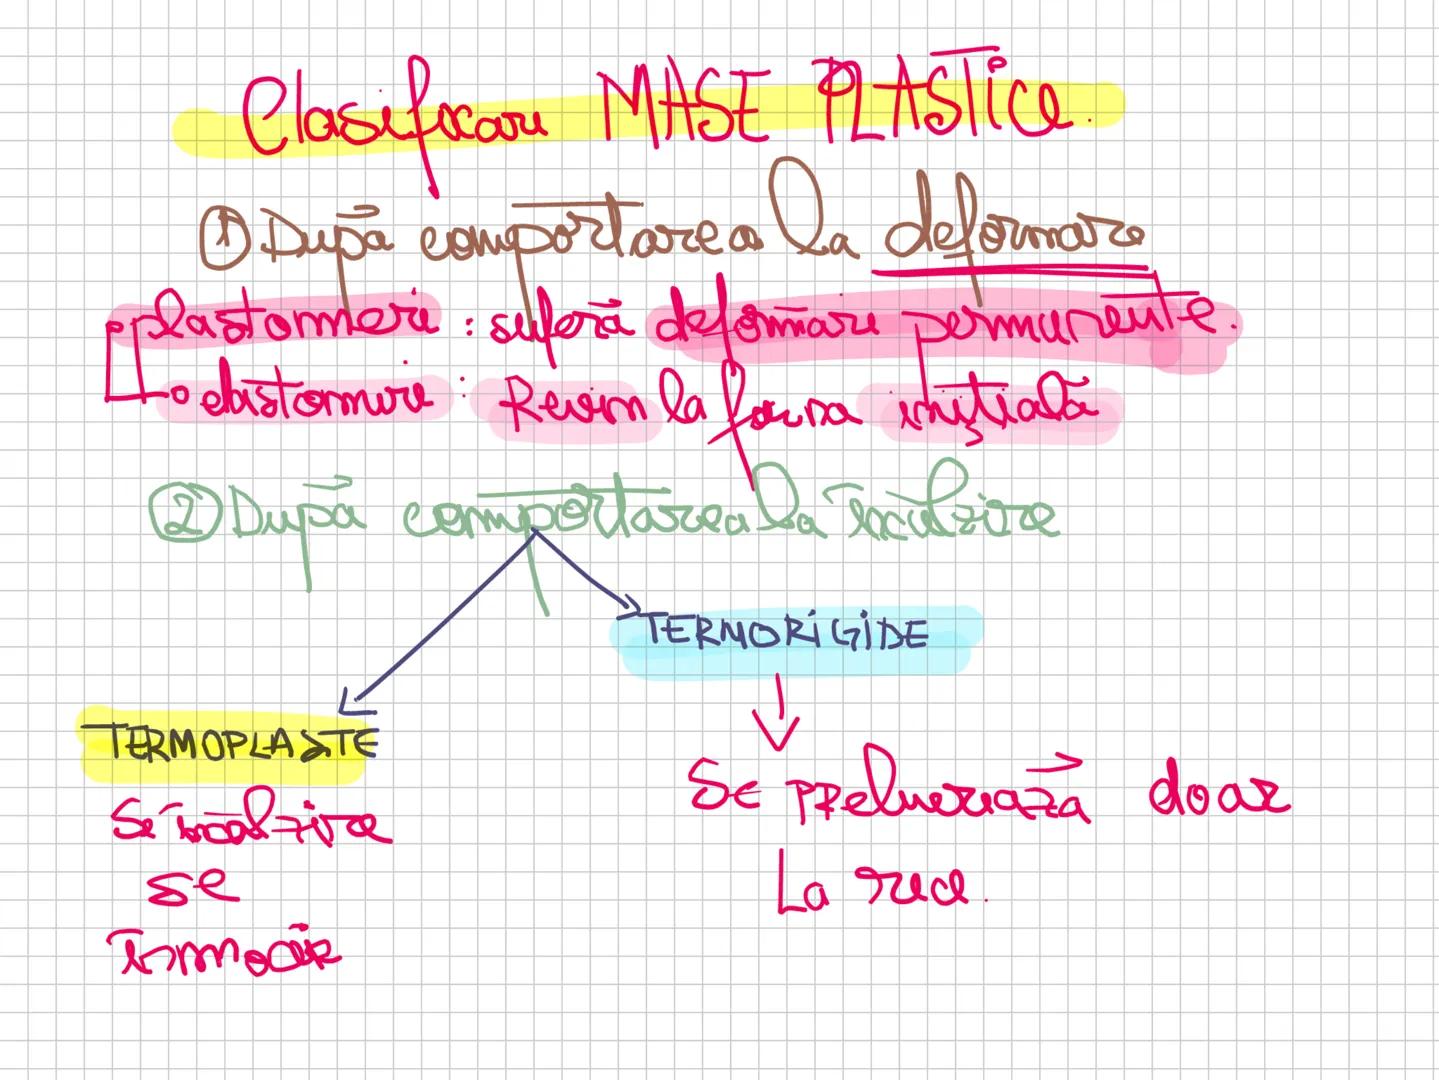 Clasificare MASE PLASTICE.
① După comportarea la deformare
plastomeri : suferă deformări permanente.
elastomeri : Revin la forma inițială
② După comportarea la încălzire
TERMORIGIDE
TERMOPLASTE
Se prelucrează doar
La rece.
încălzire
se
înmoaie